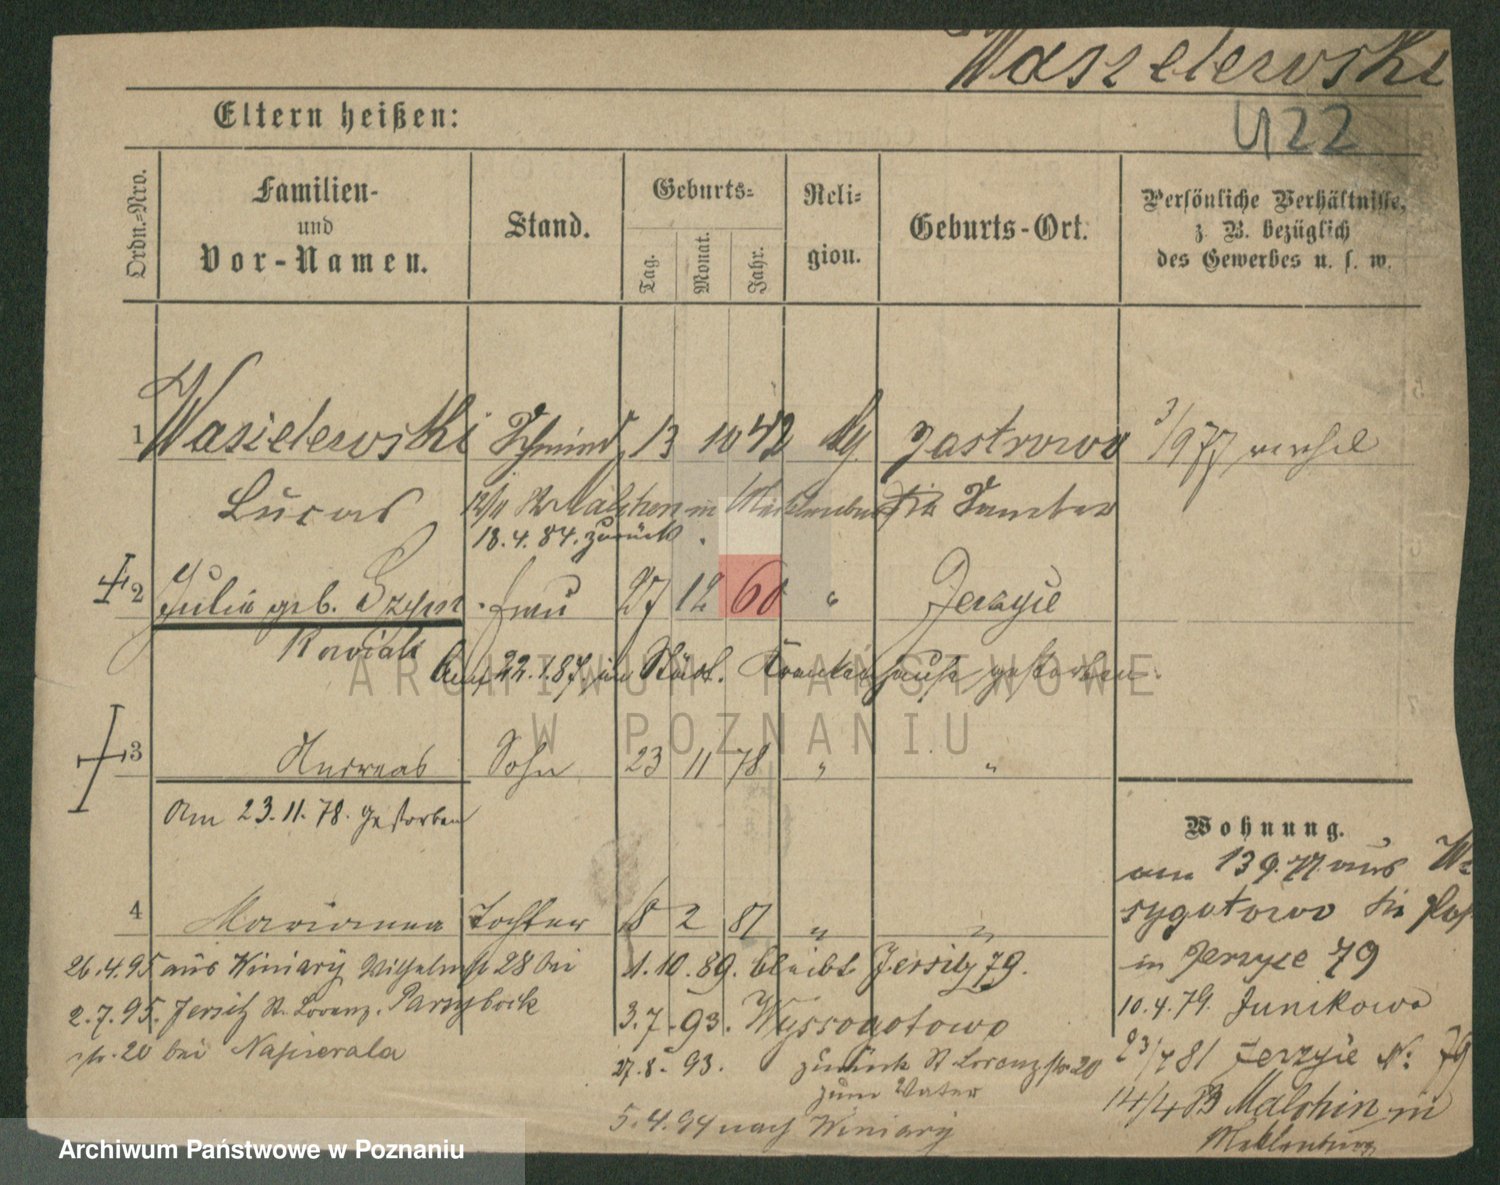 Wasielewski
422
Eltern heißen:
Ordn.-Nro.
Familien- und Vor-Namen.
Stand.
Geburts-
Tag. Monat. Jahr.
Religion.
Geburts-Ort.
Persönliche Verhältnisse, z. B. bezüglich des Gewerbes u. s. w.
1 Wasielewski Schmied 13 10 42 Jastrowo
Lucas
18.4.84. zurück.
2 Julia geb. Szym Frau 27 12 60 " Jerzyce
kowiak
Am 22.1.87 im Städt. Krankenhause gestorben.
3 Andreas Sohn 23 11 78 " "
Am 23.11.78. gestorben
Wohnung.
am 13 9. 77 aus Wy
sygotowo
in Jerzyce 79
10.4.79. Junikowo
23/4 81 Jerzyce N: 79
14/4 83 Malchin in
Meklenburg
4 Marianna Tochter 18 2 81 " "
26.4.95 aus Winiary Wilhelmstr 28 bei
2.7.95. Jersitz St. Lorenz.
str. 20 bei Napierala
1.10.89. bleibt Jersitz 79.
3.7.93. Wyssogotowo
27.8.93. zurück St Lorenzstr 20
zum Vater
5.4.94 nach Winiary
ARCHIWUM PAŃSTWOWE
W POZNANIU
Archiwum Państwowe w Poznaniu